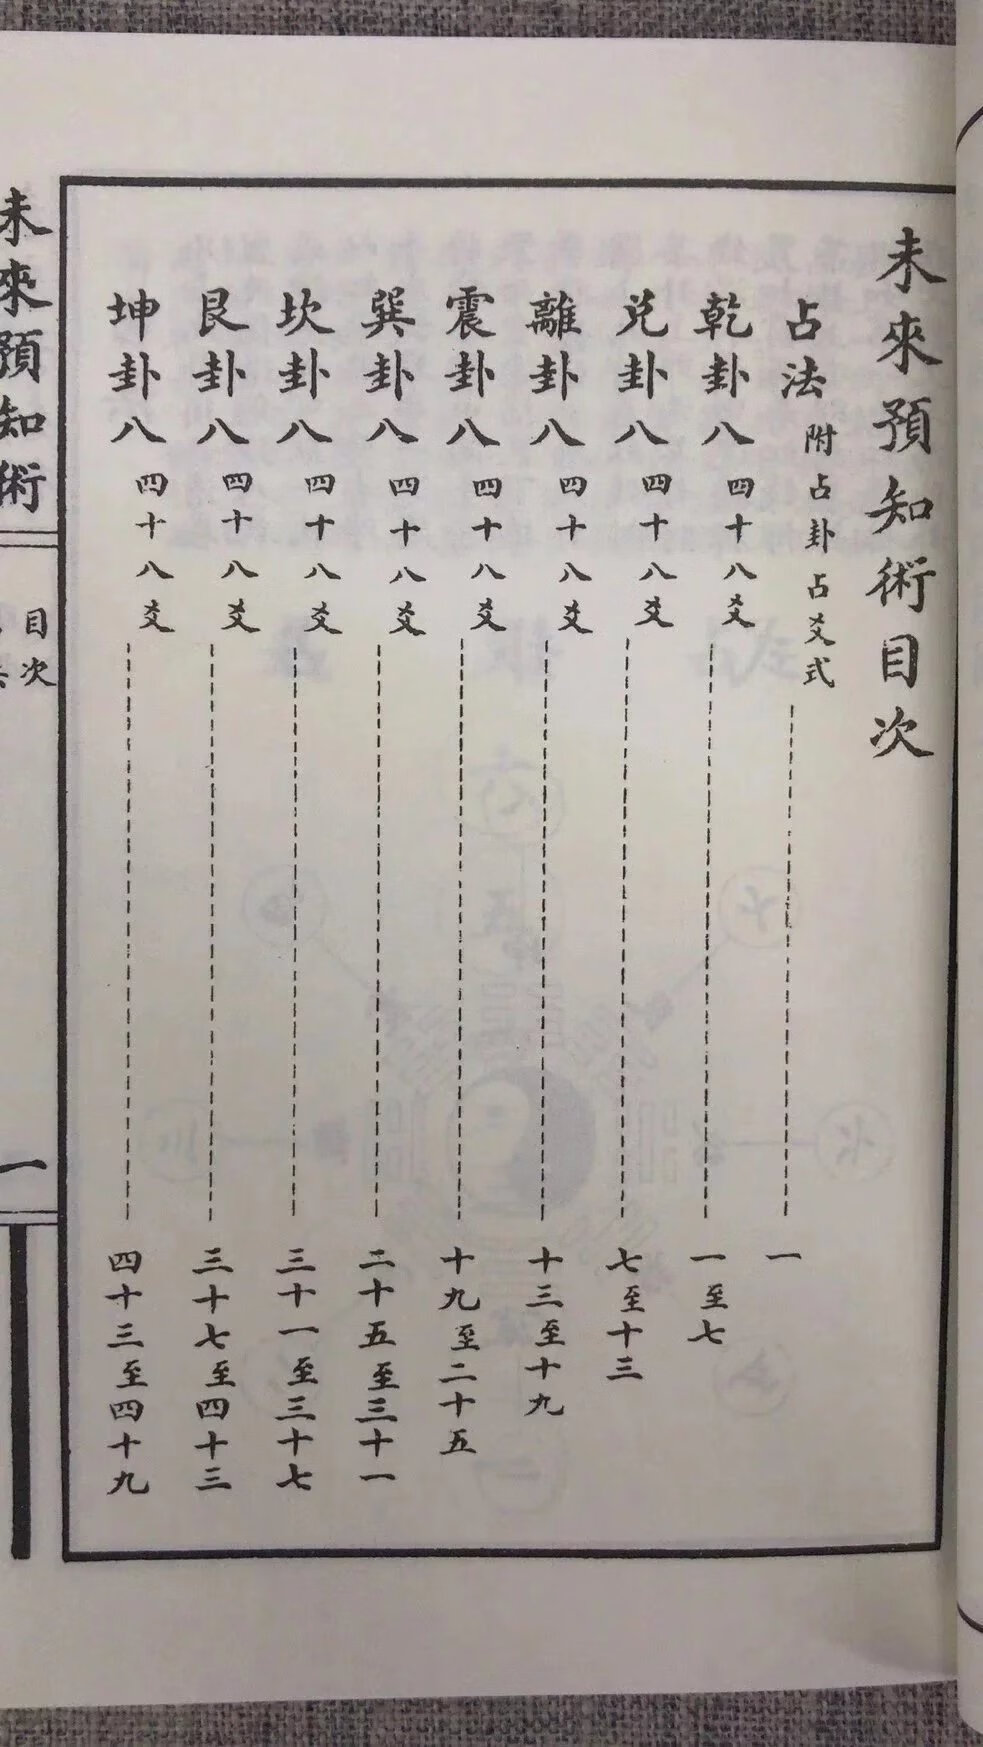 未來預知術目次
占法 附占卦占爻式 一
乾卦八 四十八爻 一至七
兑卦八 四十八爻 七至十三
離卦八 四十八爻 十三至十九
震卦八 四十八爻 十九至二十五
巽卦八 四十八爻 二十五至三十一
坎卦八 四十八爻 三十一至三十七
艮卦八 四十八爻 三十七至四十三
坤卦八 四十八爻 四十三至四十九
未來預知術
目次
一